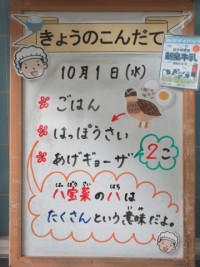 きょうのこんだて
10月1日(水)
ごはん
はっぽうさい
あげギョーザ 2こ
はっぽうさい
八宝菜の八は
たくさんという意味だよ。